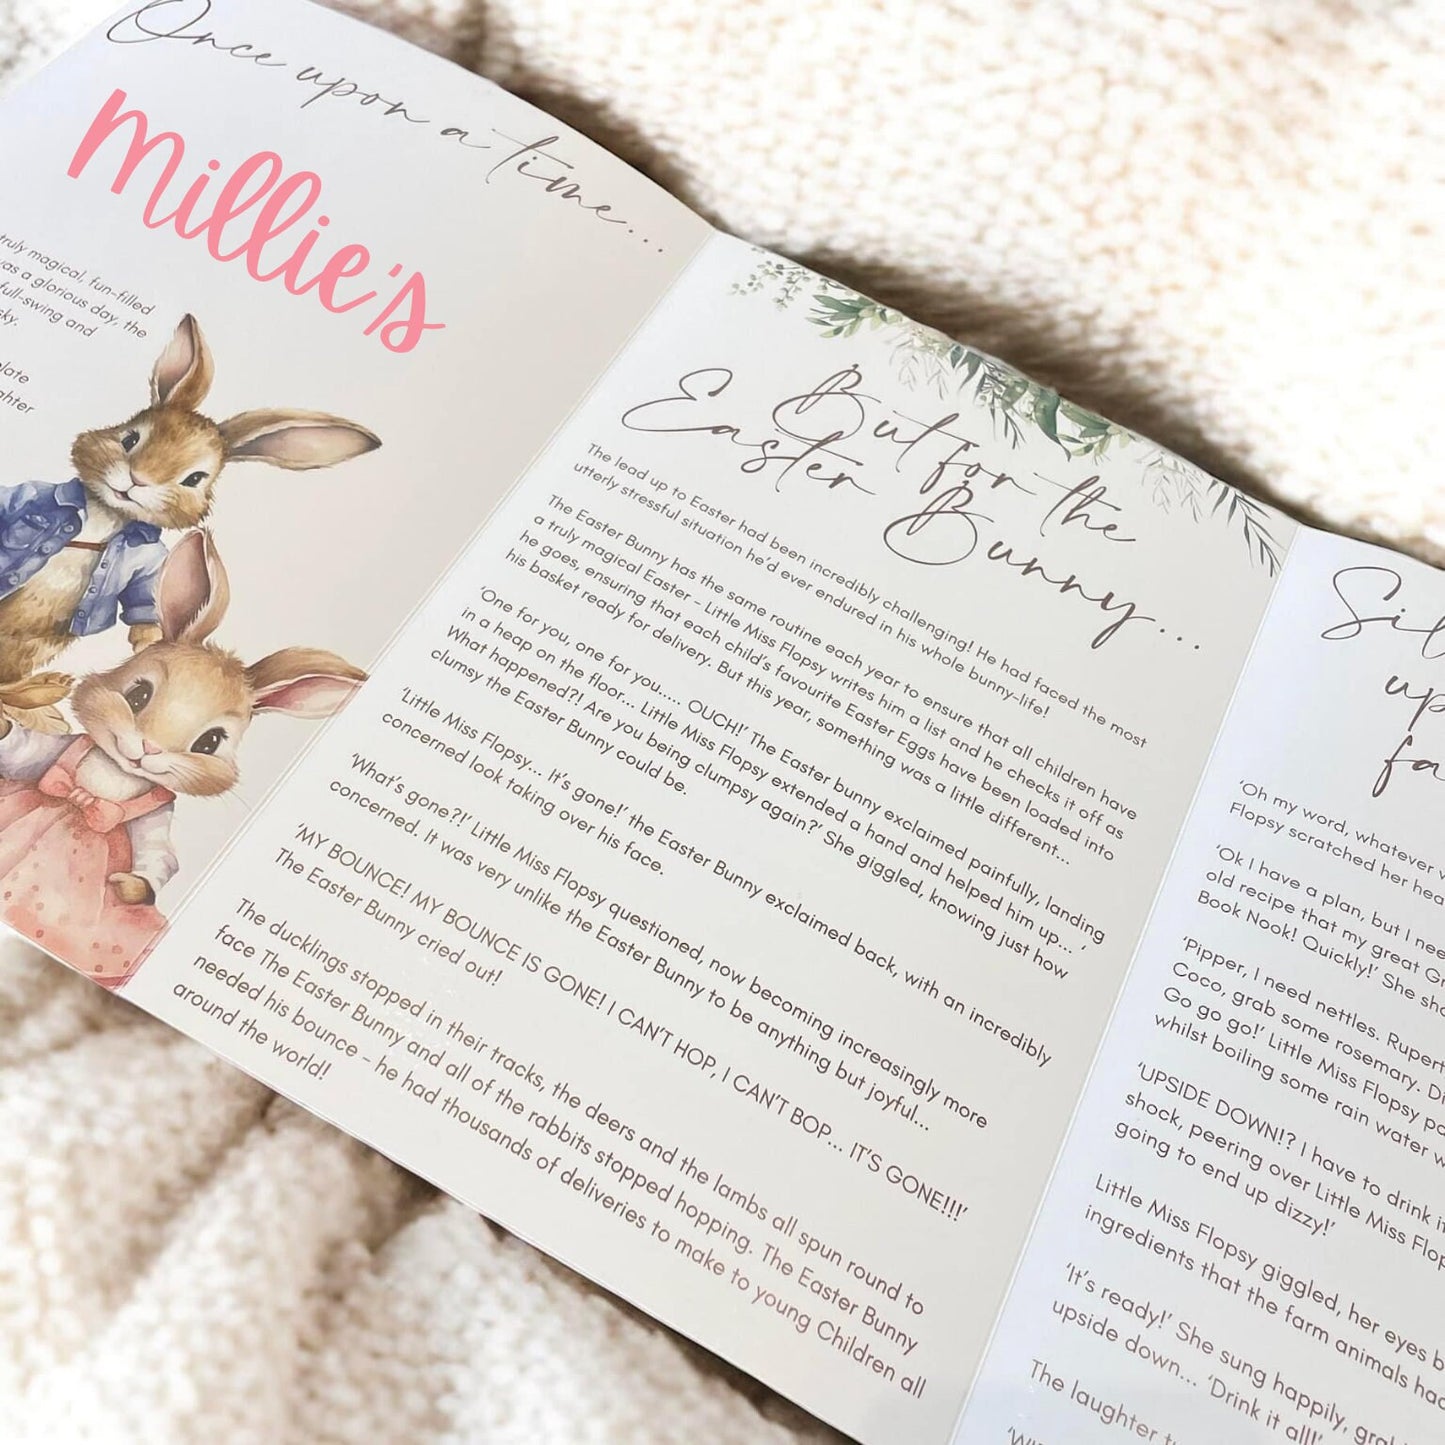 Once upon a time...
Millie's
truly magical, fun-filled
as a glorious day, the
full-swing and
sky.
But for the
Easter Bunny...
The lead up to Easter had been incredibly challenging! He had faced the most
utterly stressful situation he'd ever endured in his whole bunny-life!
The Easter Bunny has the same routine each year to ensure that all children have
a truly magical Easter – Little Miss Flopsy writes him a list and he checks it off as
he goes, ensuring that each child's favourite Easter Eggs have been loaded into
his basket ready for delivery. But this year, something was a little different...
'One for you, one for you..... OUCH!' The Easter bunny exclaimed painfully, landing
in a heap on the floor... Little Miss Flopsy extended a hand and helped him up... '
What happened?! Are you being clumpsy again?' She giggled, knowing just how
clumsy the Easter Bunny could be.
'Little Miss Flopsy... It's gone!' the Easter Bunny exclaimed back, with an incredibly
concerned look taking over his face.
'What's gone?!' Little Miss Flopsy questioned, now becoming increasingly more
concerned. It was very unlike the Easter Bunny to be anything but joyful...
'MY BOUNCE! MY BOUNCE IS GONE! I CAN'T HOP, I CAN'T BOP... IT'S GONE!!!'
The Easter Bunny cried out!
The ducklings stopped in their tracks, the deers and the lambs all spun round to
face The Easter Bunny and all of the rabbits stopped hopping. The Easter Bunny
needed his bounce – he had thousands of deliveries to make to young Children all
around the world!
'Oh my word, whatever
Flopsy scratched her hea
'Ok I have a plan, but I nee
old recipe that my great Gr
Book Nook! Quickly!' She sh
'Pipper, I need nettles. Rupert
Coco, grab some rosemary. Di
Go go go!' Little Miss Flopsy pa
whilst boiling some rain water w
'UPSIDE DOWN!? I have to drink it
shock, peering over Little Miss Flop
going to end up dizzy!'
Little Miss Flopsy giggled, her eyes b
ingredients that the farm animals had
'It's ready!' She sung happily, grab
upside down... 'Drink it all!'
The laughter t